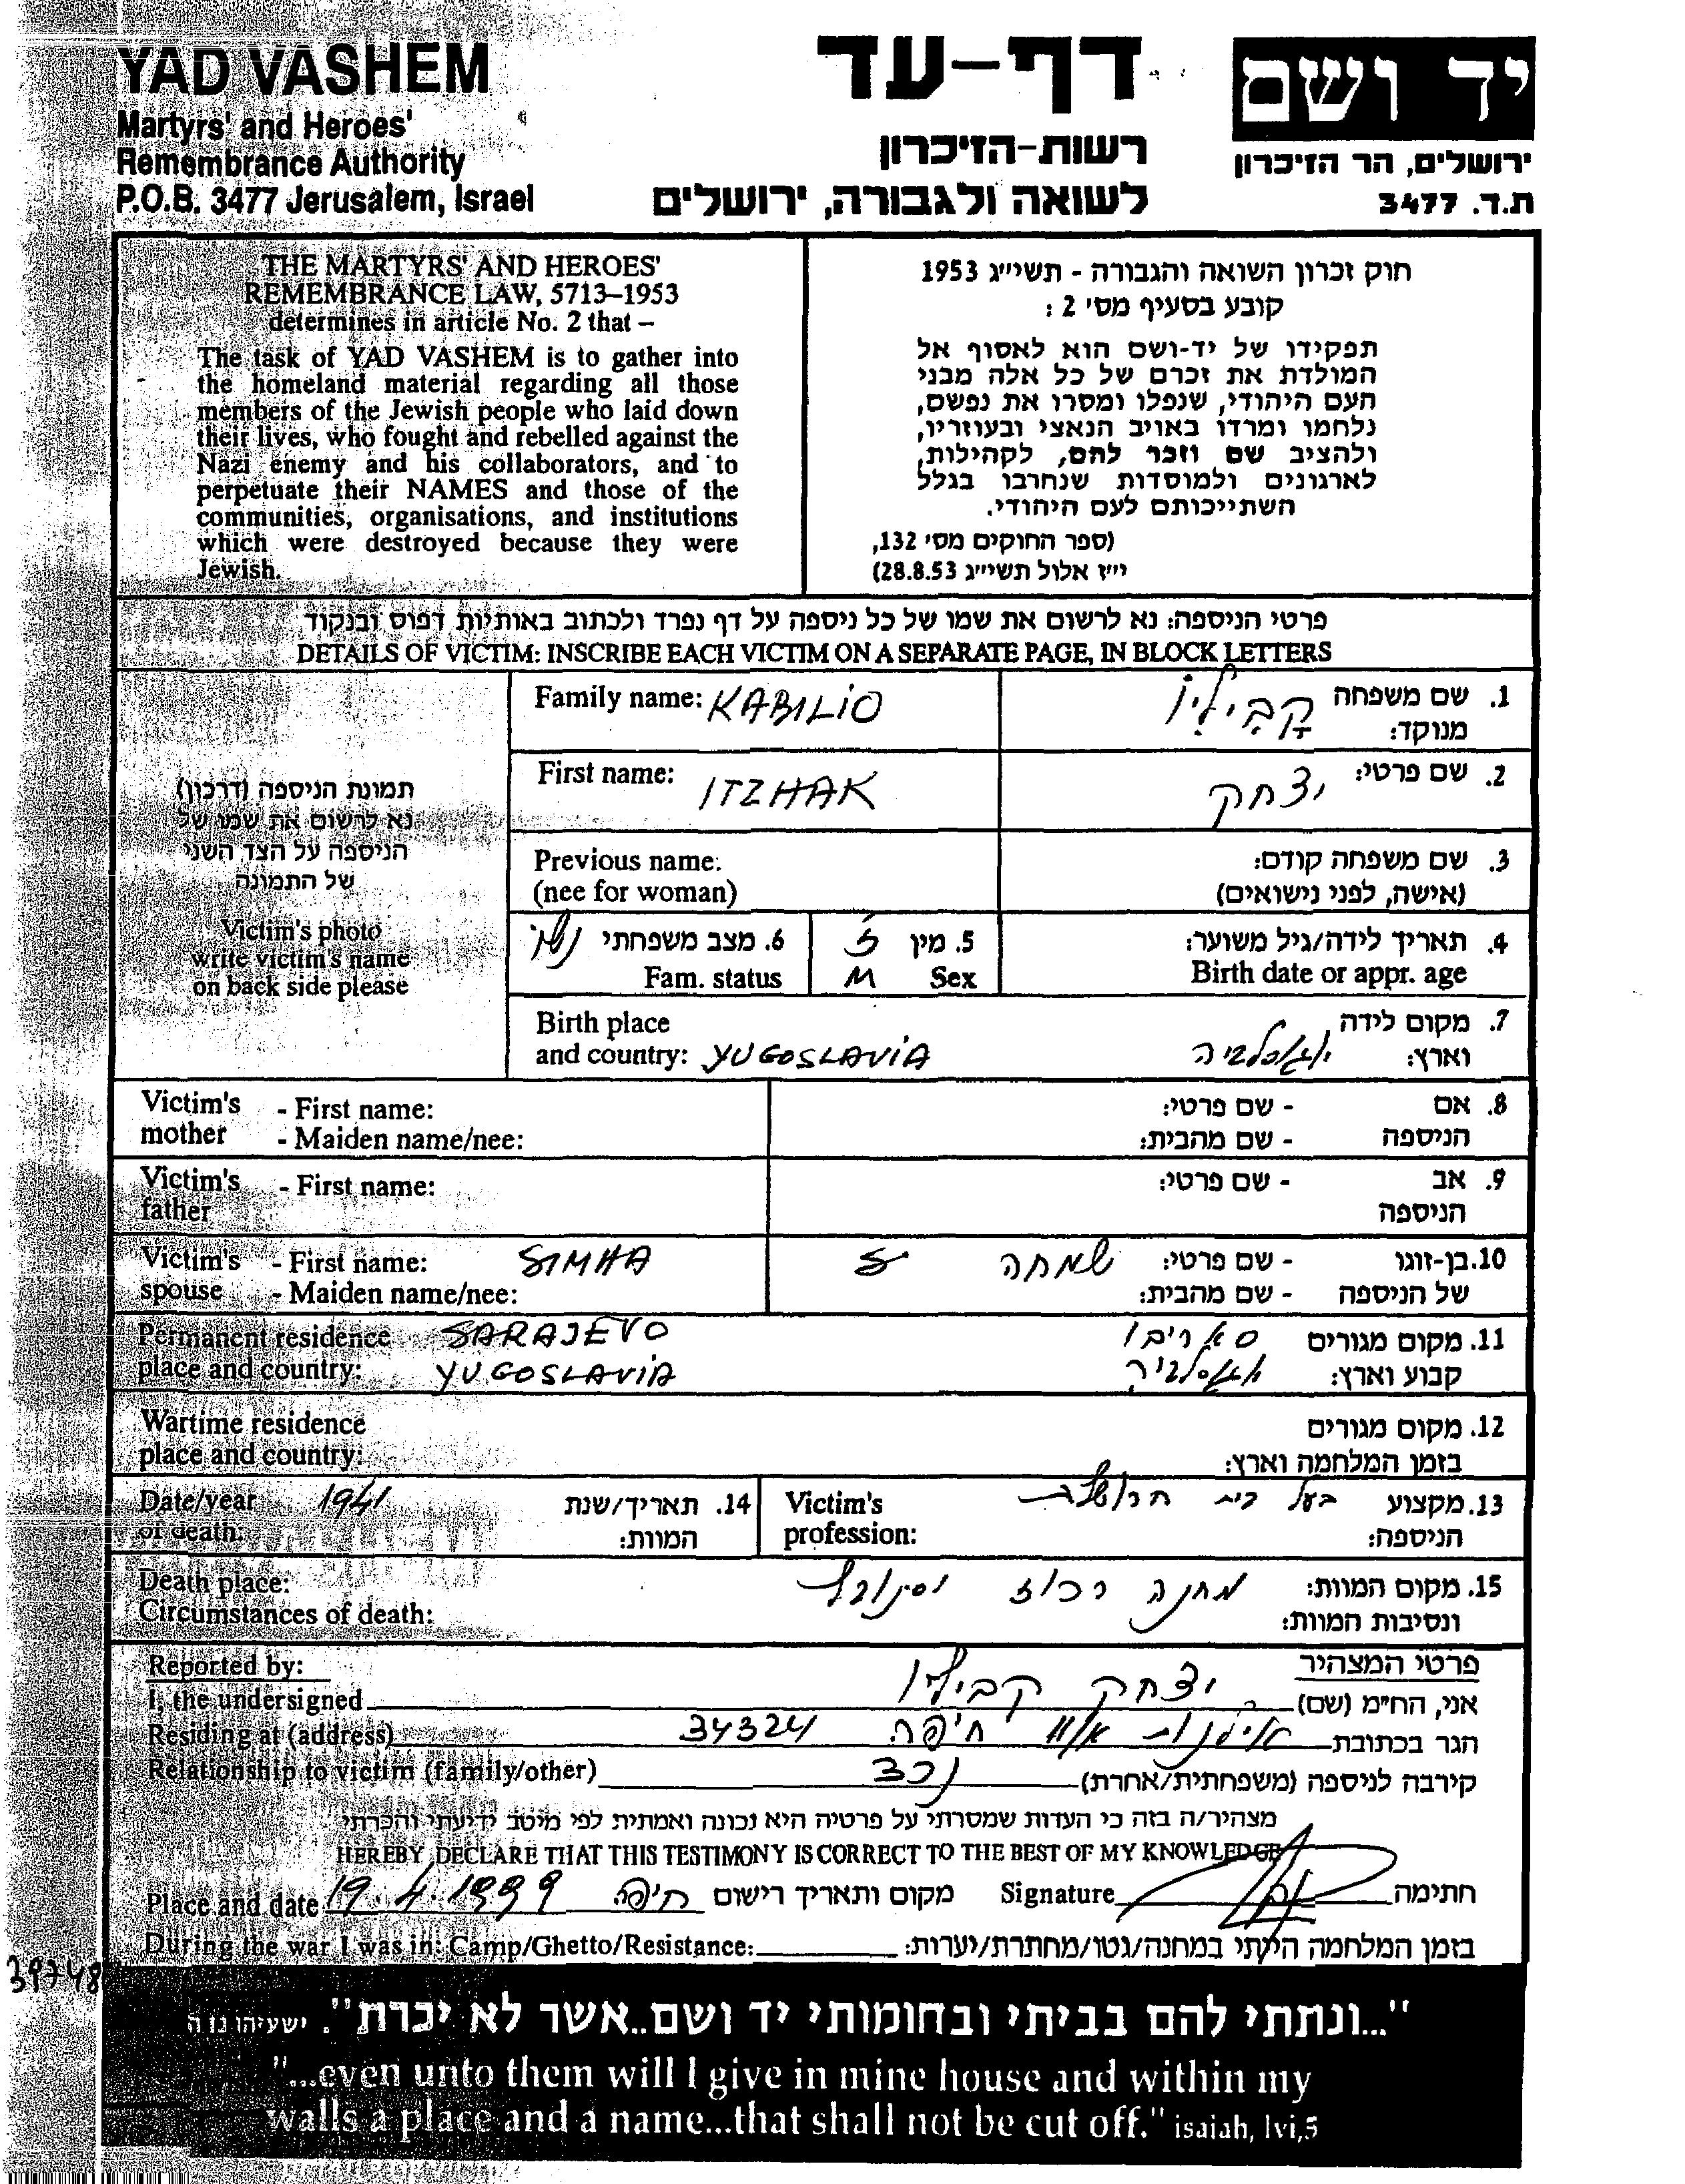 YAD VASHEM
Martyrs' and Heroes'
Remembrance Authority
P.O.B. 3477 Jerusalem, Israel
דף-עד
רשות-הזיכרון
לשואה ולגבורה, ירושלים
יד ושם
ירושלים, הר הזיכרון
ת.ד. 3477
THE MARTYRS' AND HEROES'
REMEMBRANCE LAW, 5713–1953
determines in article No. 2 that –
The task of YAD VASHEM is to gather into
the homeland material regarding all those
members of the Jewish people who laid down
their lives, who fought and rebelled against the
Nazi enemy and his collaborators, and to
perpetuate their NAMES and those of the
communities, organisations, and institutions
which were destroyed because they were
Jewish.
חוק זכרון השואה והגבורה - תשי״ג 1953
קובע בסעיף מס׳ 2 :
תפקידו של יד-ושם הוא לאסוף אל
המולדת את זכרם של כל אלה מבני
העם היהודי, שנפלו ומסרו את נפשם,
נלחמו ומרדו באויב הנאצי ובעוזריו,
ולהציב שם וזכר להם, לקהילות,
לארגונים ולמוסדות שנחרבו בגלל
השתייכותם לעם היהודי.
(ספר החוקים מס׳ 132,
י״ז אלול תשי״ג 28.8.53)
פרטי הניספה: נא לרשום את שמו של כל ניספה על דף נפרד ולכתוב באותיות דפוס ובנקוד
DETAILS OF VICTIM: INSCRIBE EACH VICTIM ON A SEPARATE PAGE, IN BLOCK LETTERS
תמונת הניספה (דרכון)
נא לרשום את שמו של
הניספה על הצד השני
של התמונה
Victim's photo
write victim's name
on back side please
Family name: KABILIO
1. שם משפחה מנוקד: קביליו
First name: ITZHAK
2. שם פרטי: יצחק
Previous name:
(nee for woman)
3. שם משפחה קודם:
(אישה, לפני נישואים)
4. תאריך לידה/גיל משוער:
Birth date or appr. age
5. מין ז
M Sex
6. מצב משפחתי נשוי
Fam. status
Birth place
and country: YUGOSLAVIA
7. מקום לידה
וארץ: יוגוסלביה
Victim's - First name:
mother - Maiden name/nee:
8. אם - שם פרטי:
הניספה - שם מהבית:
Victim's - First name:
father
9. אב - שם פרטי:
הניספה
Victim's - First name: SIMHA
spouse - Maiden name/nee:
10. בן-זוגו - שם פרטי: שמחה
של הניספה - שם מהבית:
Permanent residence SARAJEVO
place and country: YUGOSLAVIA
11. מקום מגורים
קבוע וארץ:
Wartime residence
place and country:
12. מקום מגורים
בזמן המלחמה וארץ:
Date/year 1941
of death:
14. תאריך/שנת
המוות:
Victim's
profession:
13. מקצוע בעל בית חרושת
הניספה:
Death place:
Circumstances of death:
15. מקום המוות: מחנה רכוז
ונסיבות המוות:
Reported by:
פרטי המצהיר
I, the undersigned
אני, החי״מ (שם) יצחק קביליו
Residing at (address)
הגר בכתובת חיפה 34324
Relationship to victim (family/other)
קירבה לניספה (משפחתית/אחרת) נכד
מצהיר/ה בזה כי העדות שמסרתי על פרטיה היא נכונה ואמתית לפי מיטב ידיעתי והכרתי
HEREBY DECLARE THAT THIS TESTIMONY IS CORRECT TO THE BEST OF MY KNOWLEDGE
Place and date 19.4.1999 חיפה מקום ותאריך רישום
Signature חתימה
During the war I was in: Camp/Ghetto/Resistance:
בזמן המלחמה הייתי במחנה/גטו/מחתרת/יערות:
39748
"...ונתתי להם בביתי ובחומותי יד ושם..אשר לא יכרת". ישעיהו נו ה
"...even unto them will I give in mine house and within my
walls a place and a name...that shall not be cut off." isaiah, lvi,5